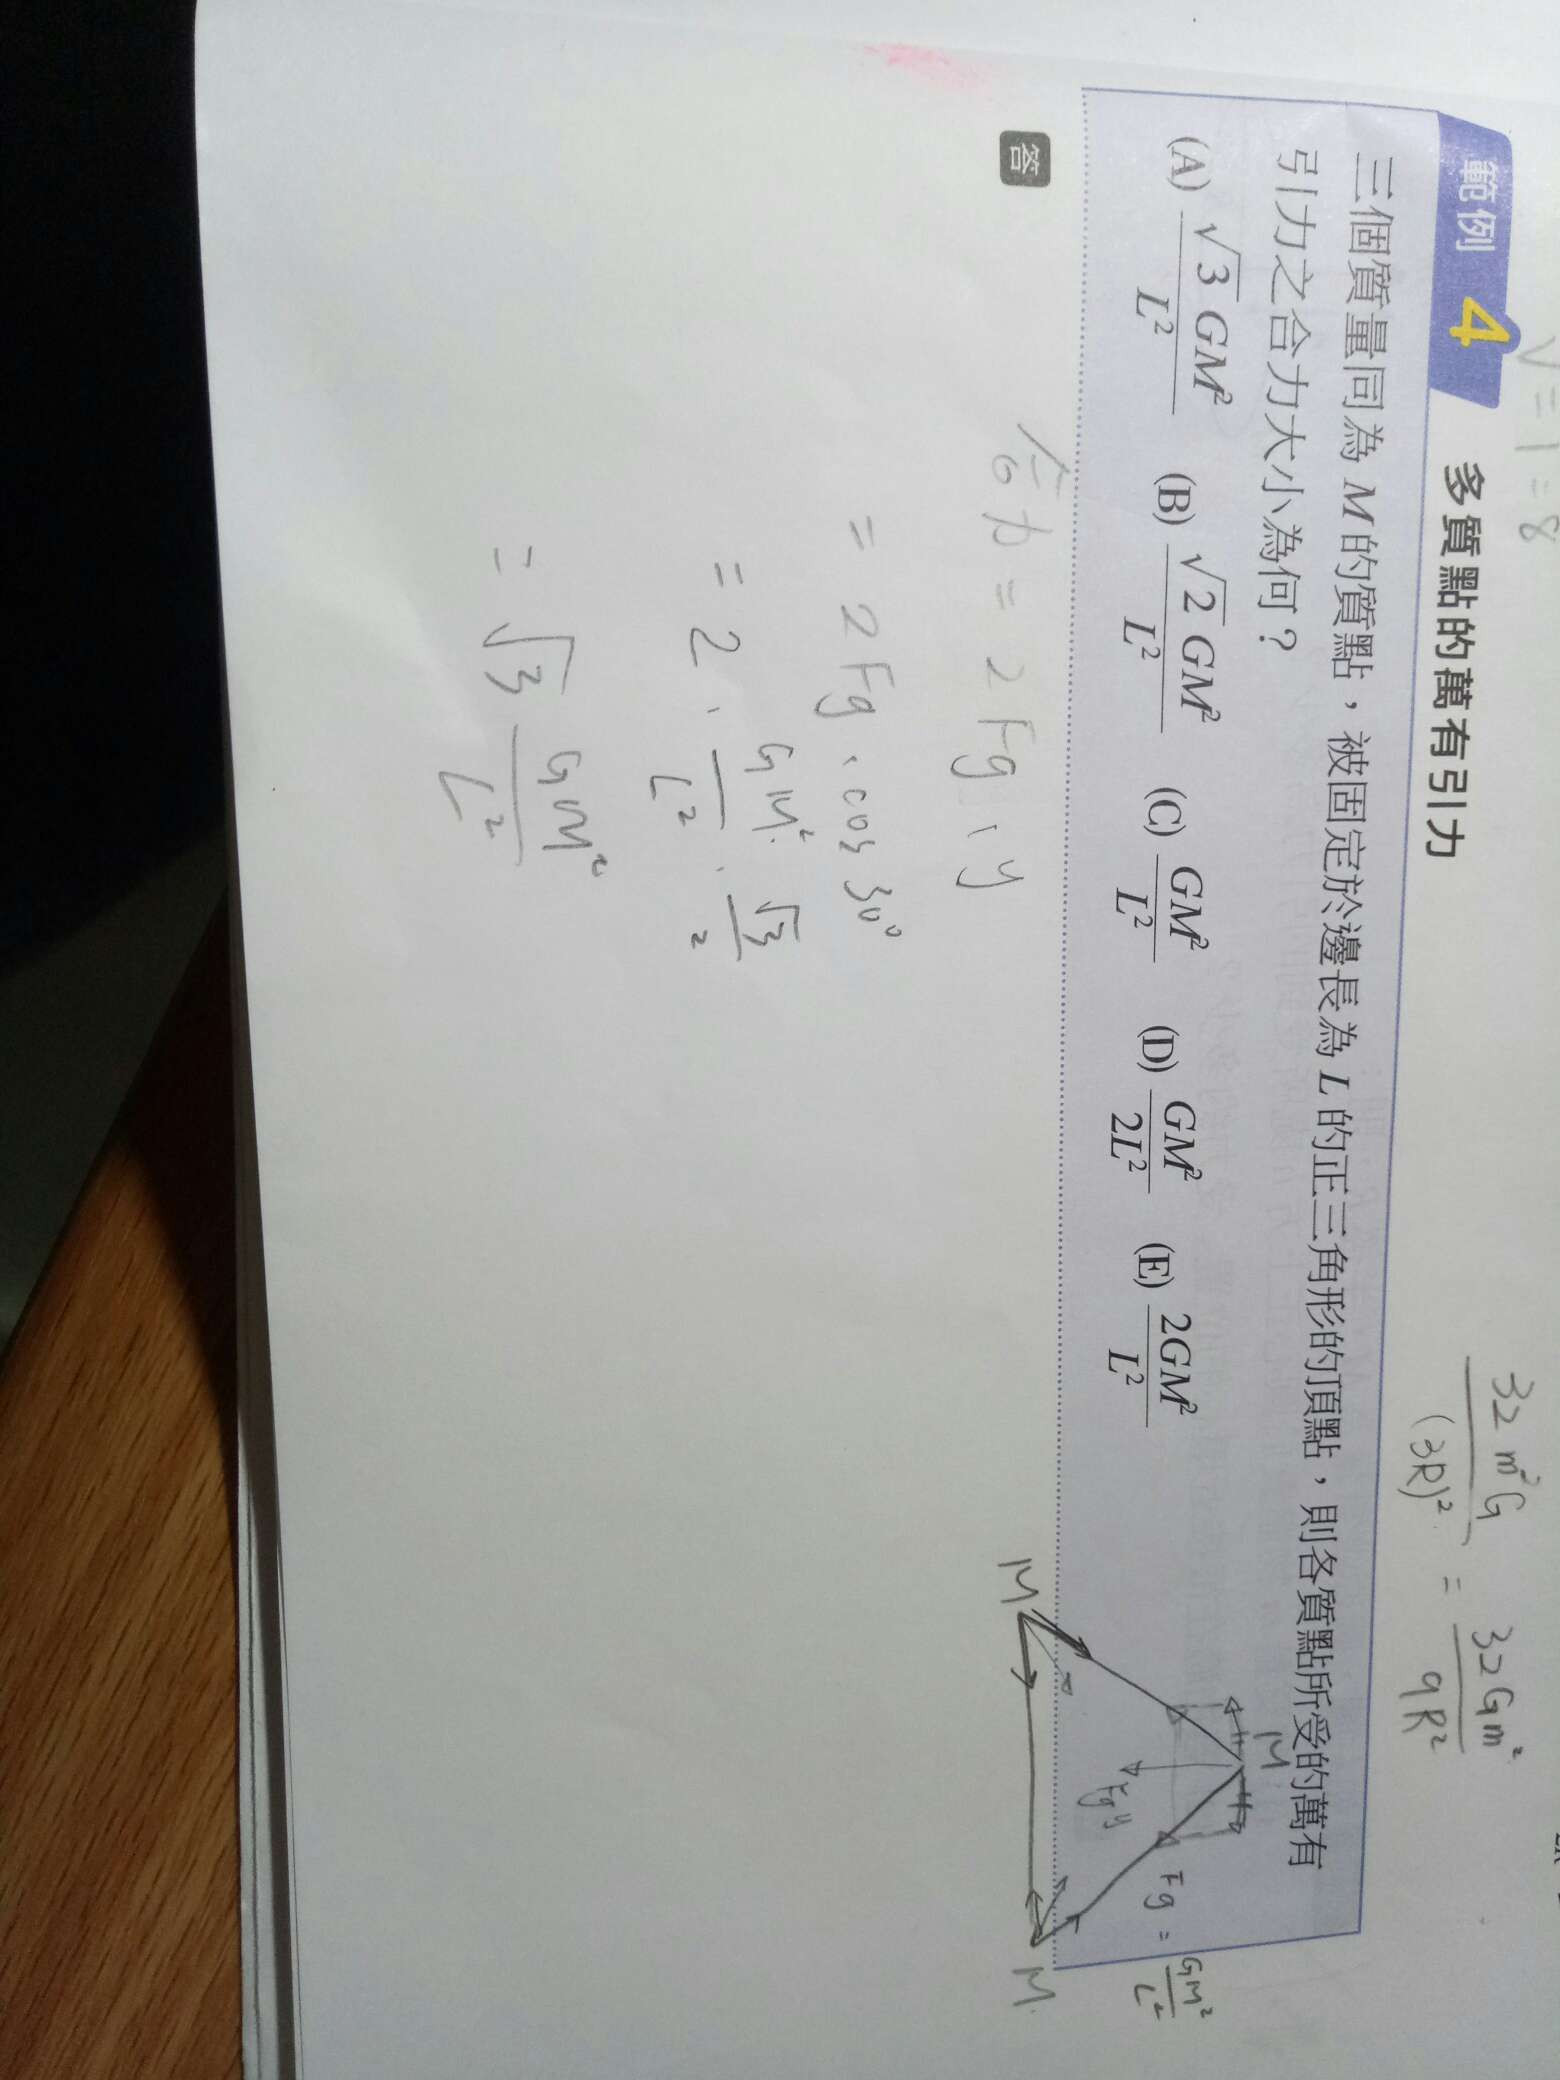 V = 1 = 8
32m²G / (3R)² = 32Gm² / 9R²
範例 4 多質點的萬有引力
三個質量同為 M 的質點，被固定於邊長為 L 的正三角形的頂點，則各質點所受的萬有
引力之合力大小為何？
(A) √3 GM² / L² (B) √2 GM² / L² (C) GM² / L² (D) GM² / 2L² (E) 2GM² / L²
答
M
Fg = GM² / L²
Fgy
M
M
合力 = 2Fg,y
= 2Fg · cos 30°
= 2 · GM² / L² · √3 / 2
= √3 GM² / L²